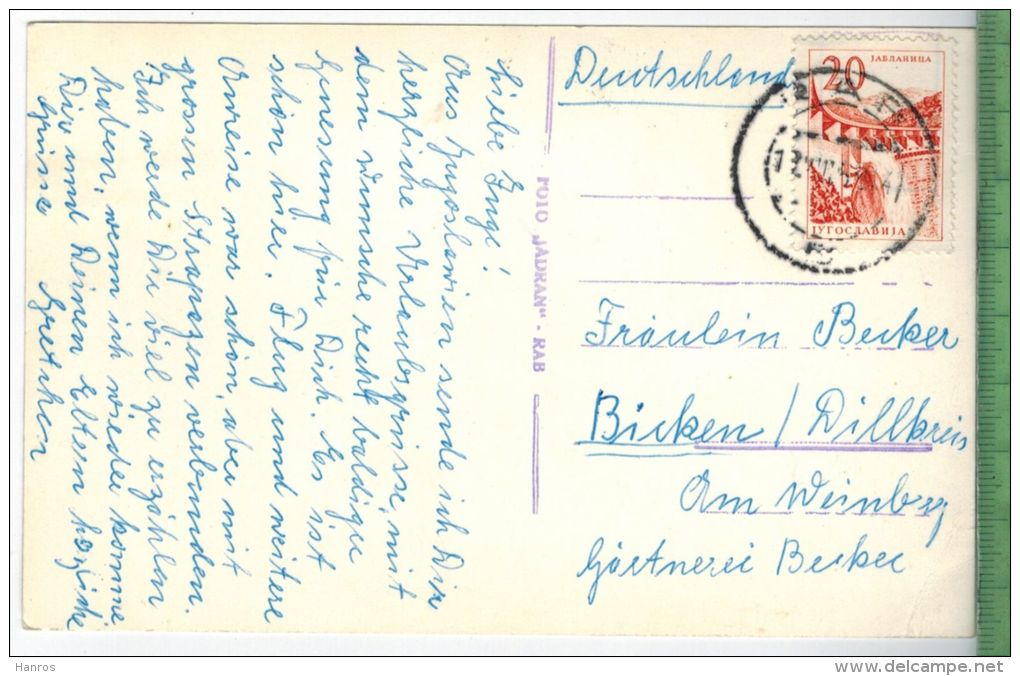 Liebe Inge!
Aus Jugoslawien sende ich Dir
herzliche Urlaubsgrüsse, mit
dem Wunsche recht baldige
Genesung für Dich. Es ist
schön hier. Flug und weitere
Anreise war schön, aber mit
grossen Strapazen verbunden.
Ich werde Dir viel zu erzählen
haben, wenn ich wieder komme.
Dir und Deinen Eltern herzliche
Grüsse Gretchen
FOTO „JADRAN“ - RAB
Deutschland
20
ЈАБЛАНИЦА
JУГОСЛАВИЈА
Fräulein Becker
Bicken / Dillkreis
Am Weinberg
Gärtnerei Becker
Hanros
www.delcampe.net